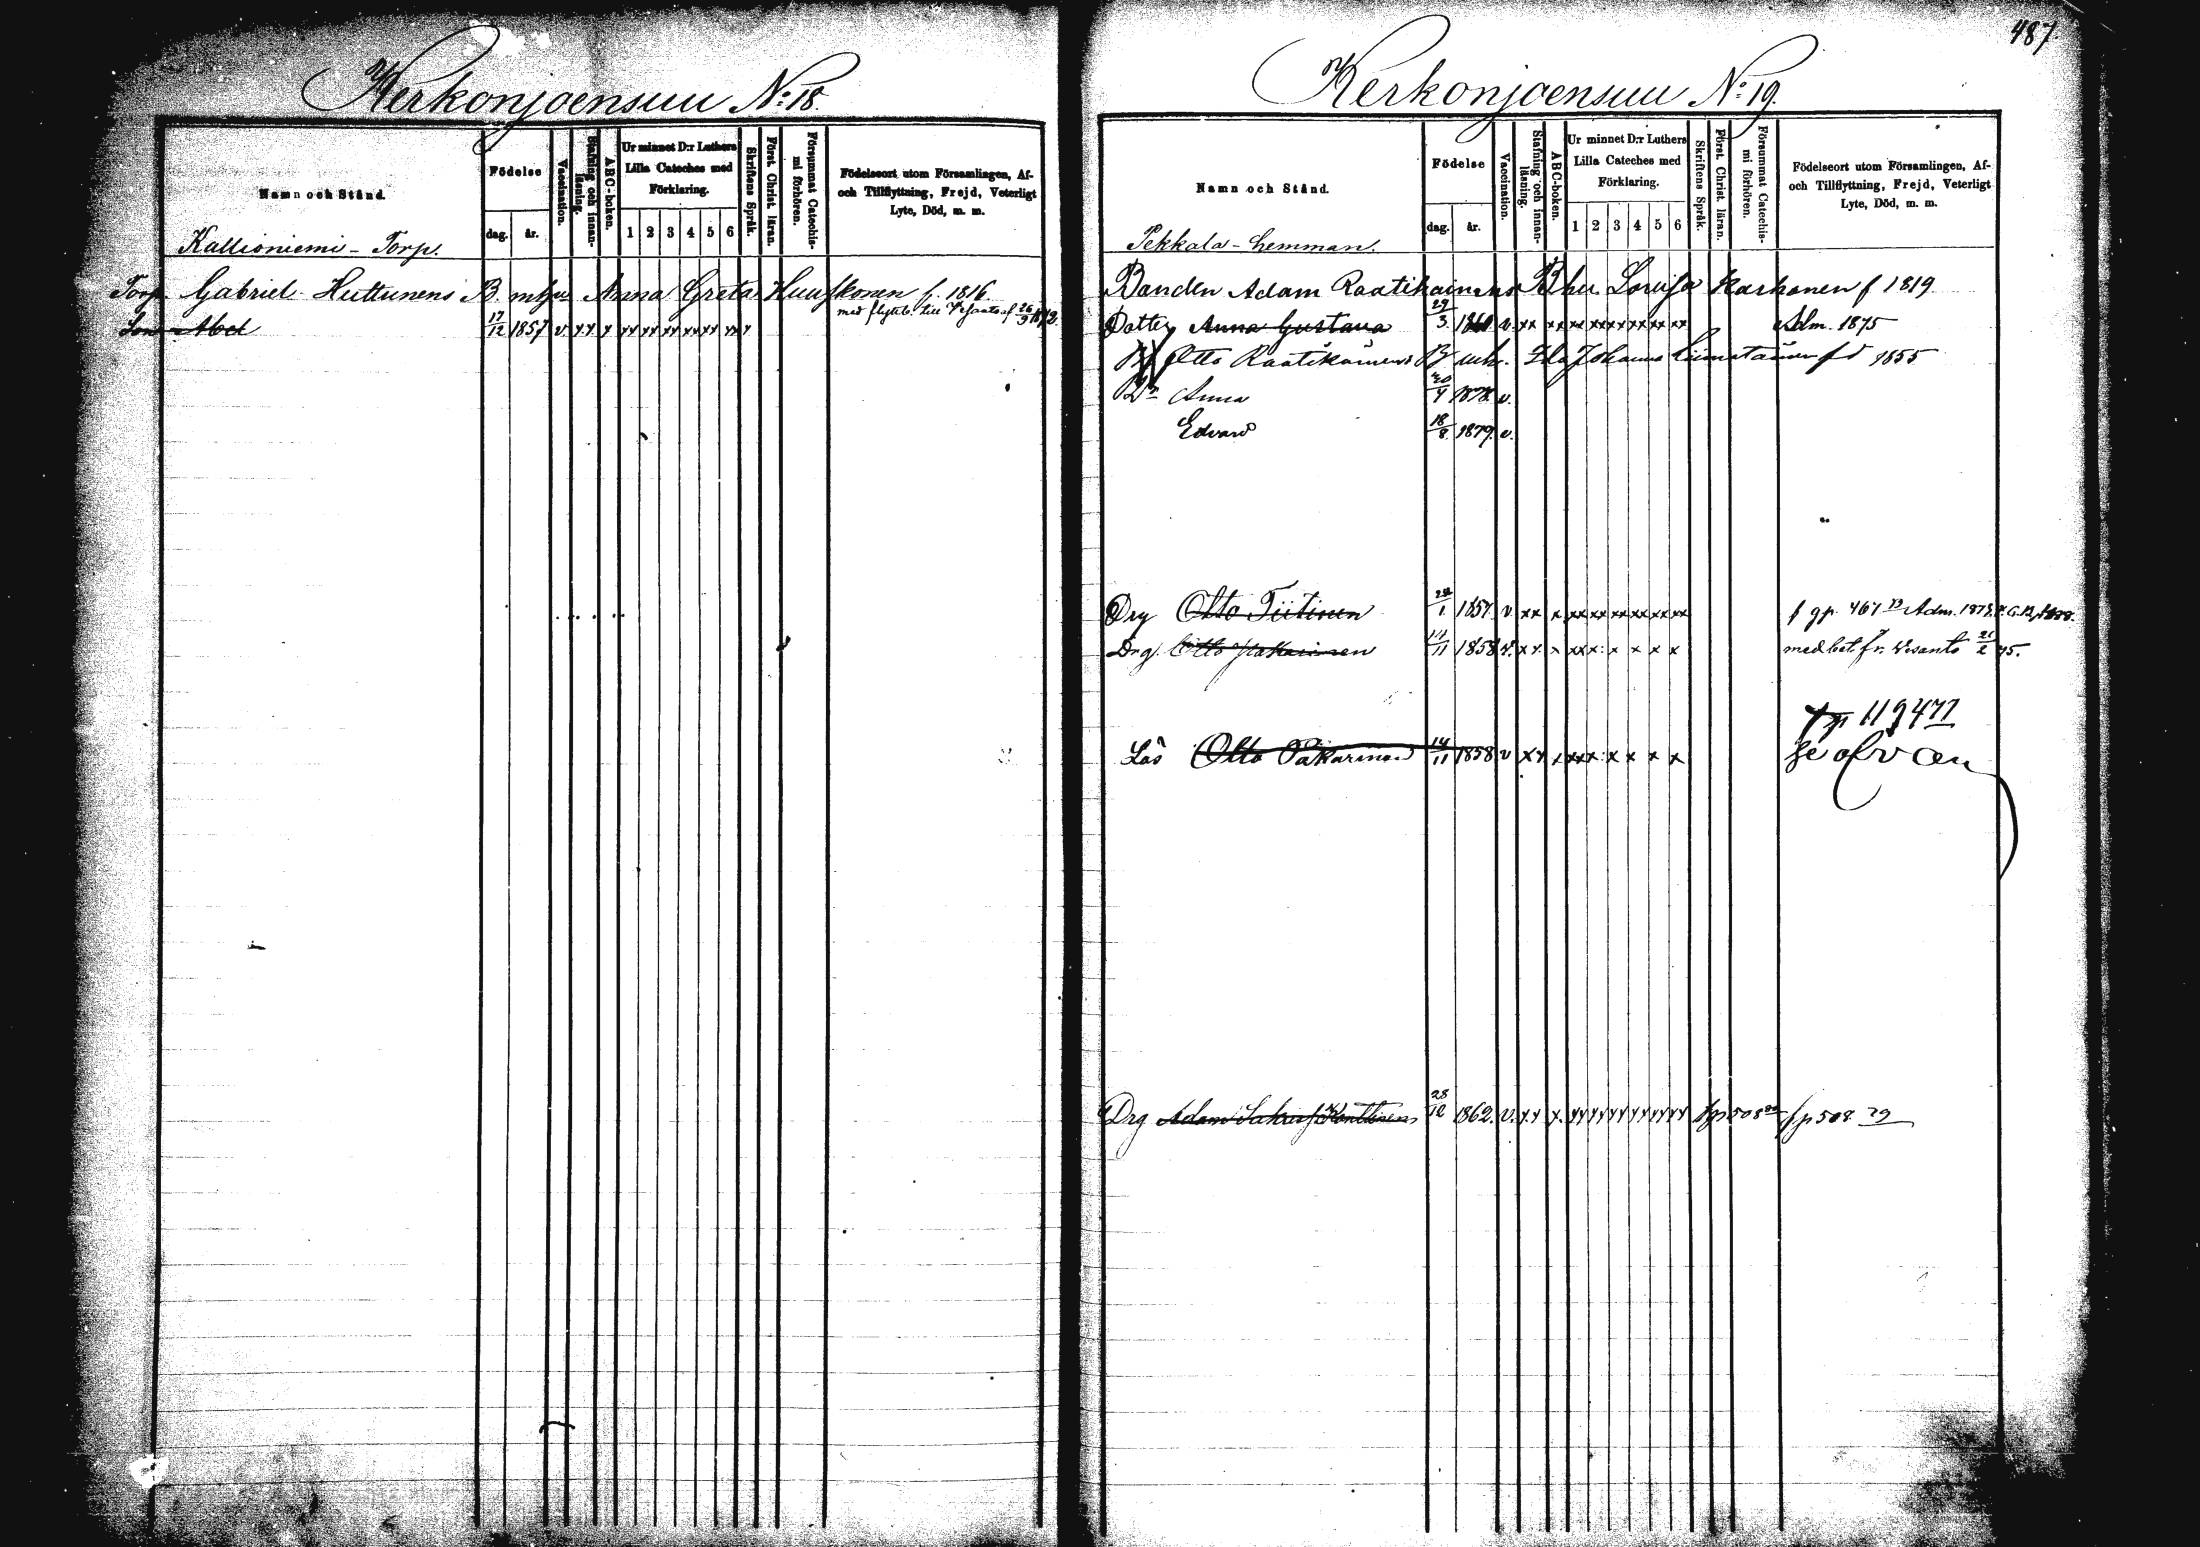 487.
Kerkonjoensuu No: 18.
Namn och Stånd.
Födelse
dag. år.
Vaccination.
Stafning och innanläsning.
ABC-boken.
Ur minnet D:r Luthers
Lilla Cateches med
Förklaring.
1 2 3 4 5 6
Skriftens Språk.
Först. Christ. läran.
Försummat Catechismi förhören.
Födelseort utom Församlingen, Af-
och Tillflyttning, Frejd, Veterligt
Lyte, Död, m. m.
Kallioniemi - Torp.
Torp. Gabriel Huttunens B. mhu Anna Greta Huuskonen f. 1816.
Son Abel 17/12 1857 v. xx x xx xx xx xx xx x
med flyttb. till Vesanto af 26/9
Kerkonjoensuu No: 19.
Namn och Stånd.
Födelse
dag. år.
Vaccination.
Stafning och innanläsning.
ABC-boken.
Ur minnet D:r Luthers
Lilla Cateches med
Förklaring.
1 2 3 4 5 6
Skriftens Språk.
Först. Christ. läran.
Försummat Catechismi förhören.
Födelseort utom Församlingen, Af-
och Tillflyttning, Frejd, Veterligt
Lyte, Död, m. m.
Pekkala - hemman.
Bonden Adam Raatikainens B hu Lovisa Karhonen f 1819
Dotter Anna Gustava 29/3 v xx xx xx xx xx xx xx xx Adm. 1875
Otto Raatikainens B mh. Ida Johanna 1855
Dr Anna 1878. v.
Edvard 18/8 1879. v.
Drg Otto Tiitinen 1857 v xx x xx xx xx xx xx xx f gp. 467 Adm.
Drg. Otto Pakarinen 14/11 1858 v. xx x xx x x x x x med bet. fr. Vesanto 21/2 75.
119 477
Lös Otto Pakarinen 14/11 1858 v xx x xx x x x x x se ofvan
Drg Adam 28/12 1862. v. xx x. xx xx xx xx xx xx fp 508 fp 508. 79